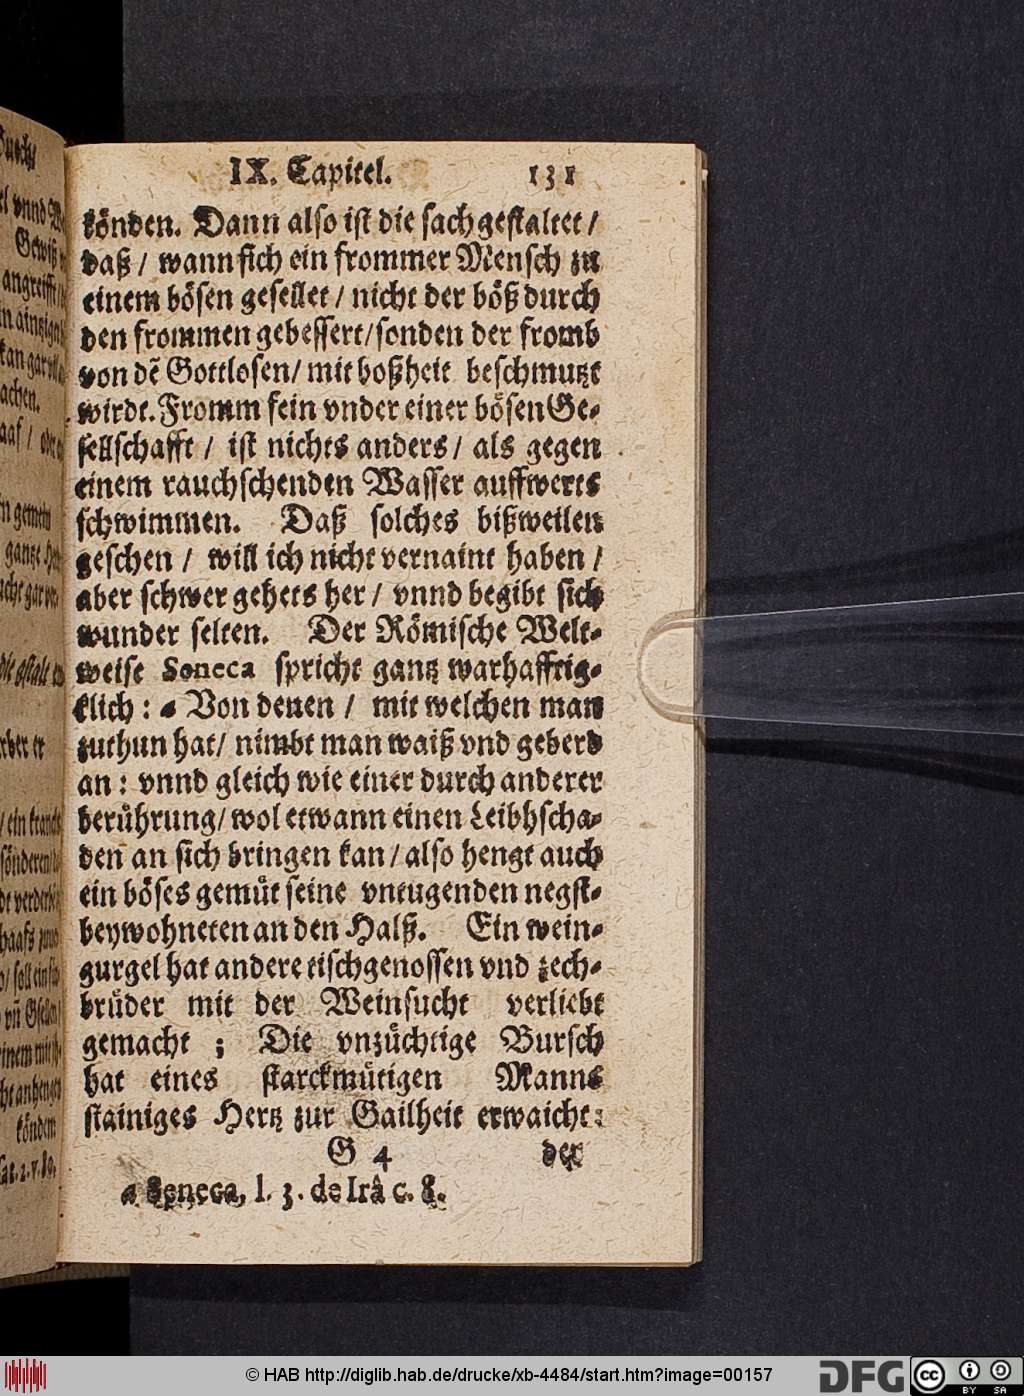 IX. Capitel. 131
könden. Dann also ist die sach gestaltet /
daß / wann sich ein frommer Mensch zu
einem bösen gesellet / nicht der böß durch
den frommen gebessert/sonden der fromb
von dẽ Gottlosen/ mit boßheit beschmutzt
wirdt. Fromm sein vnder einer bösen Ge-
sellschafft / ist nichts anders / als gegen
einem rauchschenden Wasser auffwerts
schwimmen. Daß solches bißweilen
geschen / will ich nicht vernaint haben /
aber schwer gehets her / vnnd begibt sich
wunder selten. Der Römische Welt-
weise Seneca spricht gantz warhafftig-
klich : a Von denen / mit welchen man
zuthun hat/ nimbt man waiß vnd geberd
an : vnnd gleich wie einer durch anderer
berührung/ wol etwann einen Leibhscha-
den an sich bringen kan / also hengt auch
ein böses gemüt seine vntugenden negst-
beywohneten an den Halß. Ein wein-
gurgel hat andere tischgenossen vnd zech-
brüder mit der Weinsucht verliebt
gemacht ; Die vnzüchtige Bursch
hat eines starckmütigen Manns
stainiges Hertz zur Gailheit erwaicht:
G 4 der
a Seneca, l. 3. de Irâ c. 8.
Buch/
vnnd
Gewiß
angreifft
kan gar
achen.
gemein
gantze
die gstalt
/ ein kranck
sönderen
verderb
haafs
soll ein
vñ Gsellen
einem
anhengen
könden
© HAB http://diglib.hab.de/drucke/xb-4484/start.htm?image=00157
DFG
cc
BY SA